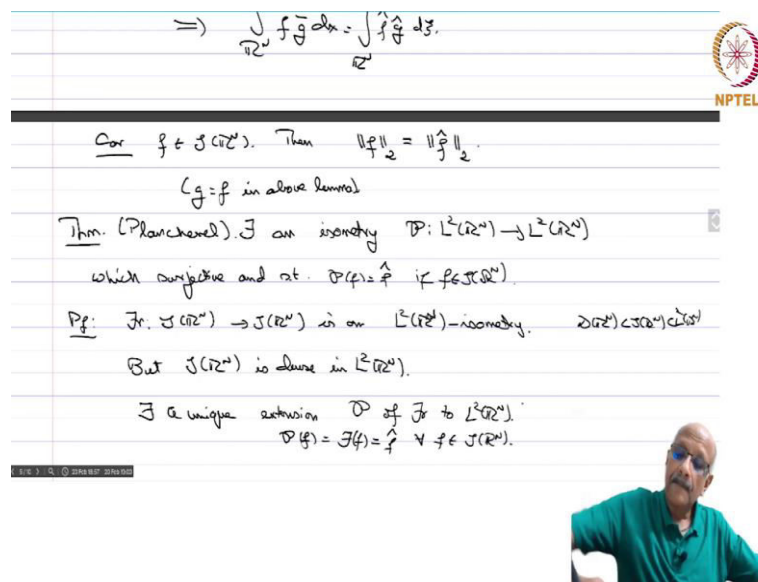 ⇒) ∫_{ℝ^N} f ḡ dx = ∫_{ℝ^N} f̂ ĝ dξ.
NPTEL
Cor f ∈ S(ℝ^N). Then ‖f‖₂ = ‖f̂‖₂.
(g = f in above lemma)
Thm. (Plancherel). ∃ an isometry P: L²(ℝ^N) → L²(ℝ^N)
which surjective and st. P(f) = f̂ if f ∈ S(ℝ^N).
Pf: Fr: S(ℝ^N) → S(ℝ^N) is an L²(ℝ^N)-isometry. D(ℝ^N) ⊂ S(ℝ^N) ⊂ L²(ℝ^N)
But S(ℝ^N) is dense in L²(ℝ^N).
∃ a unique extension P of Fr to L²(ℝ^N).
P(f) = F(f) = f̂ ∀ f ∈ S(ℝ^N).